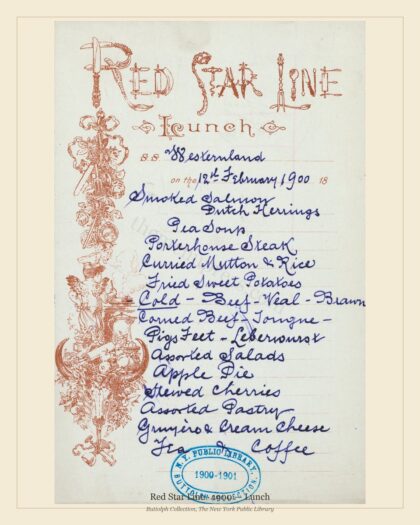 RED STAR LINE
Lunch
S.S. Westernland
on the 12th February 1900 18
Smoked Salmon
Dutch Herrings
Pea Soup
Porterhouse Steak
Curried Mutton & Rice
Fried Sweet Potatoes
Cold - Beef - Veal - Brawn
Corned Beef - Tongue -
Pigs Feet - Leberwurst
Assorted Salads
Apple Pie
Stewed Cherries
Assorted Pastry
Gruyèro & Cream Cheese
Tea & Coffee
N.Y. PUBLIC LIBRARY,
1900-1901
BUTTOLPH COLLECTION.
Red Star Line 1900s - Lunch
Buttolph Collection, The New York Public Library